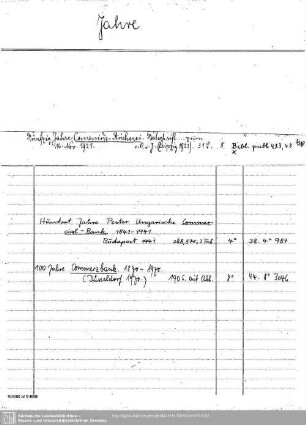 Jahre
Fünfzig Jahre Comenius-Bücherei. Festschrift zum
16. Nov. 1921. (Leipzig 1921). 31 S. 8. Bibl. publ. 493,43
Hundert Jahre Pester Ungarische Commer-
cial-Bank 1841-1941
Budapest 4° 38. 4° 987
100 Jahre Commerzbank 1870-1970.
(Düsseldorf 1970.) 190 S. mit Abb. 8° 44. 8° 3046
Sächsische Landesbibliothek -
Staats- und Universitätsbibliothek Dresden